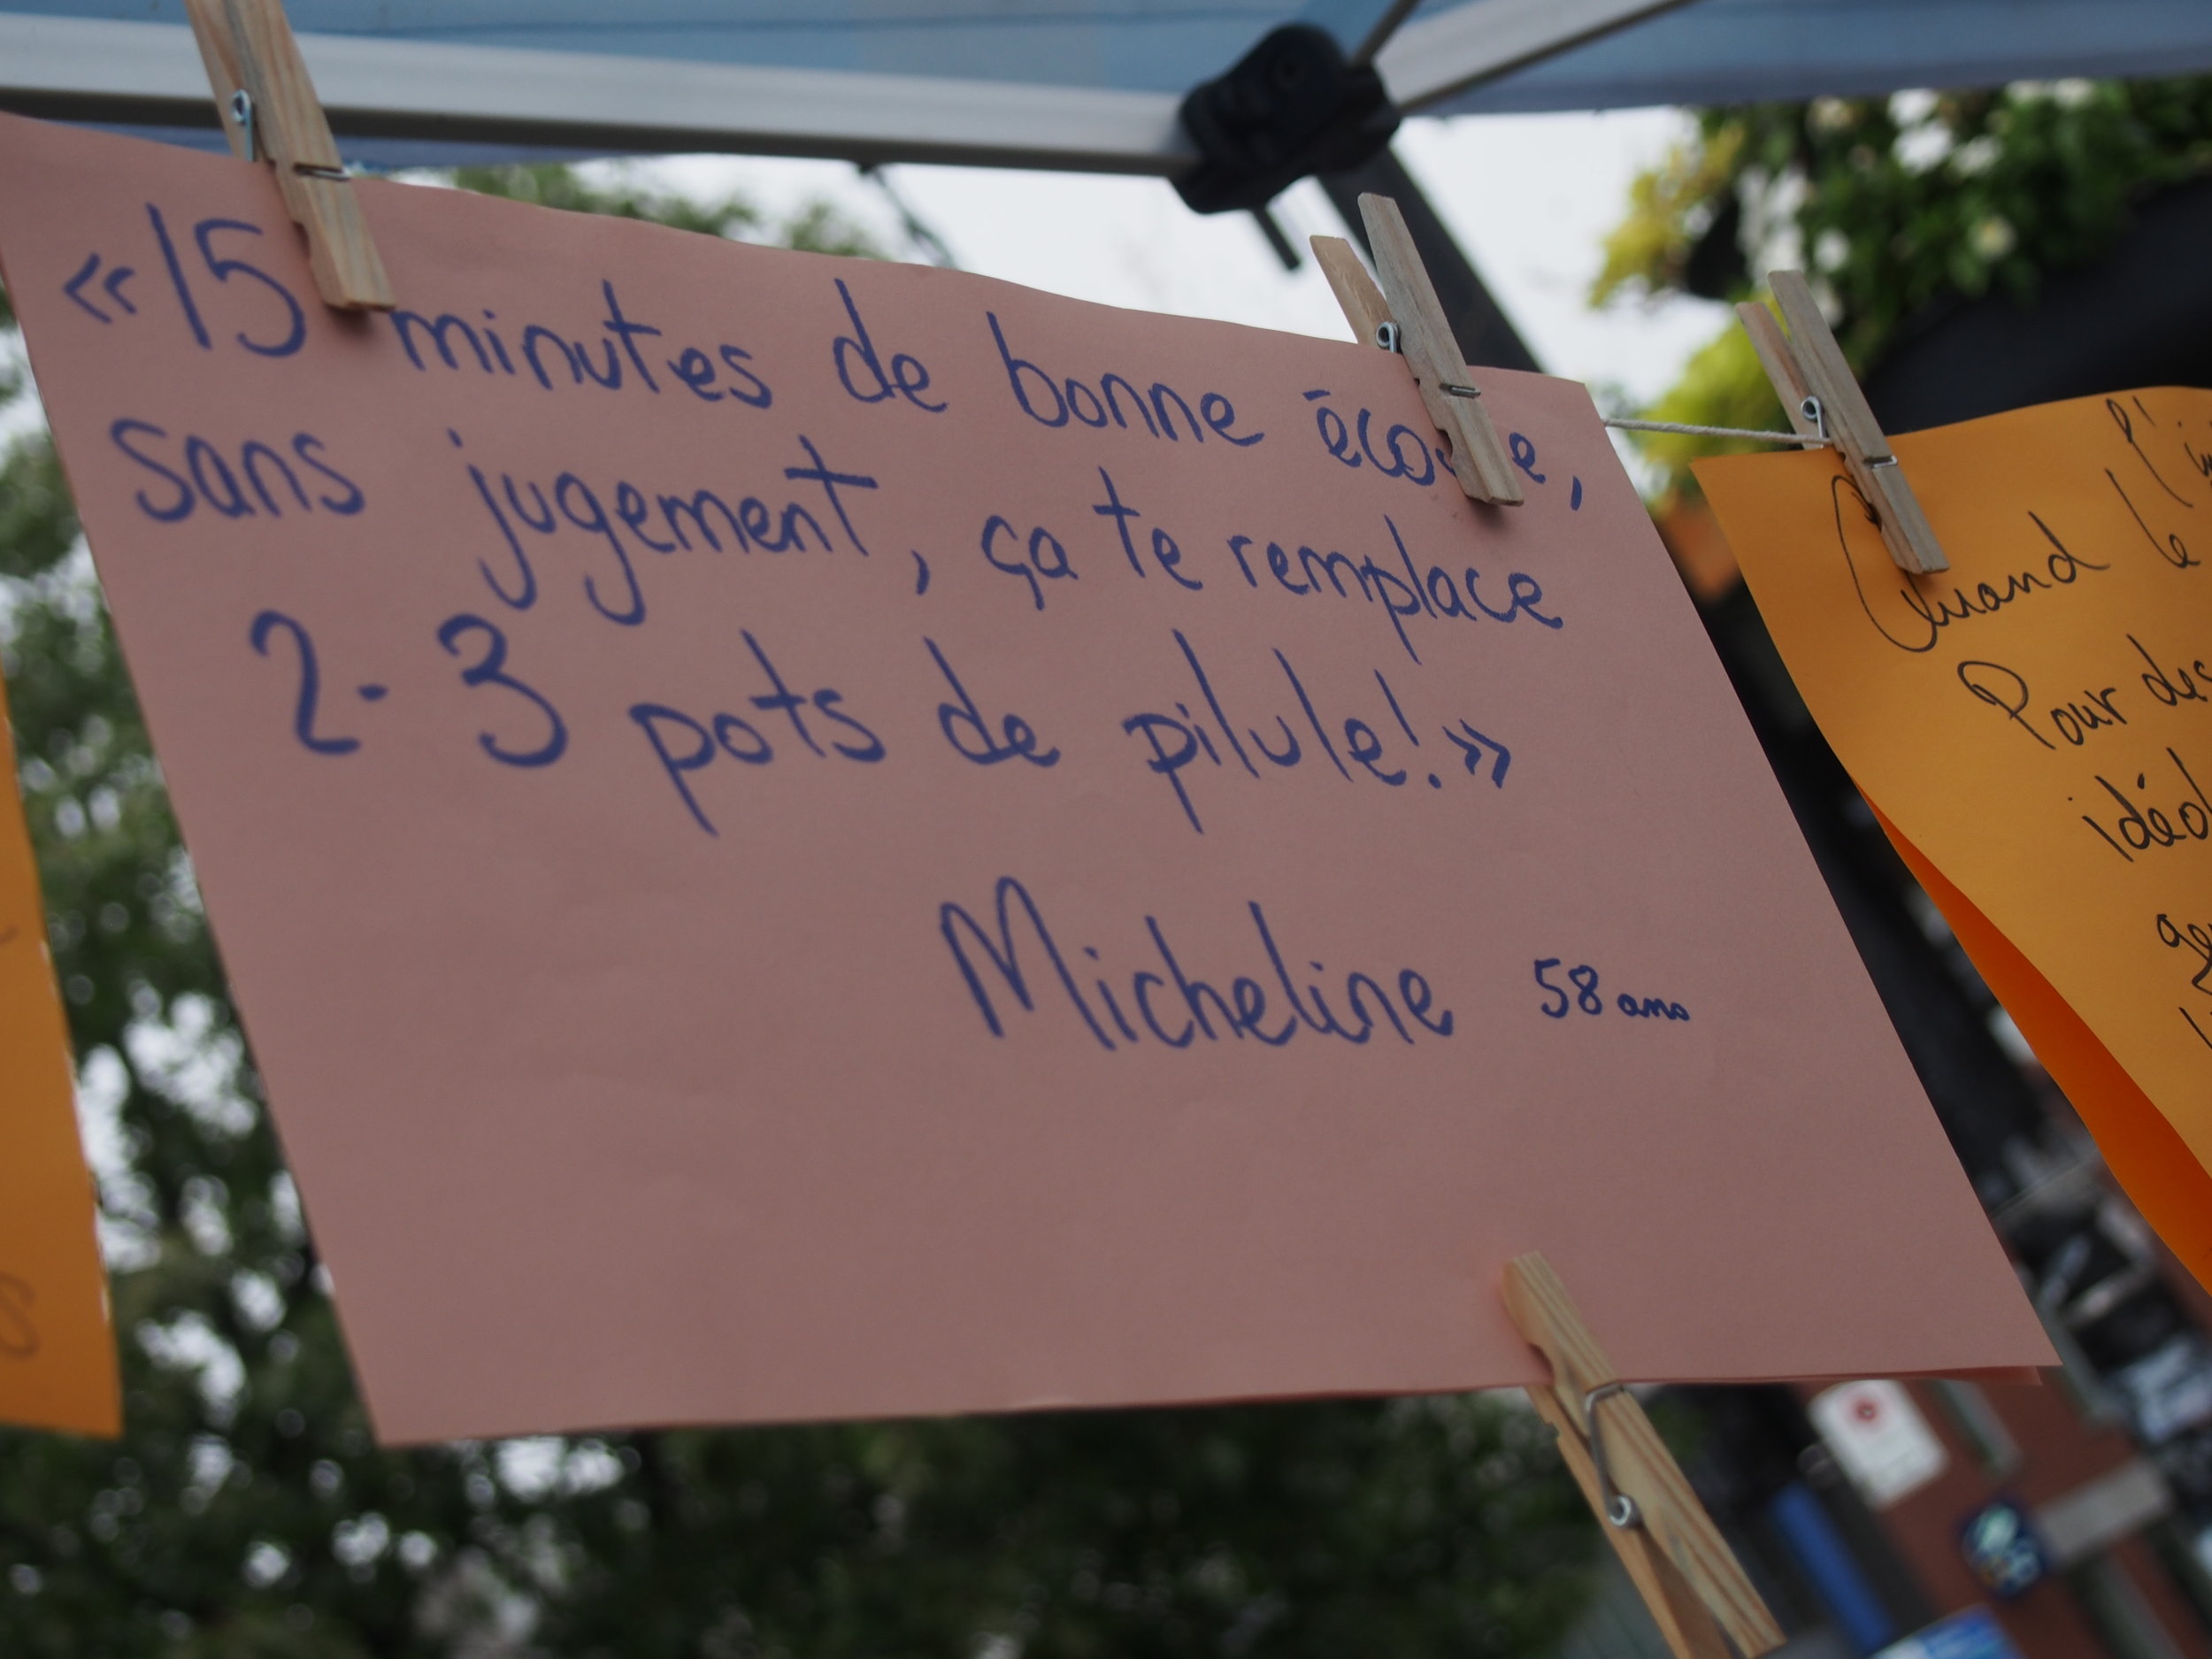 «15 minutes de bonne écoute,
sans jugement, ça te remplace
2-3 pots de pilule!»
Micheline 58 ans
Quand le
Pour des